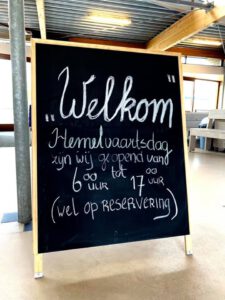 „Welkom"
Hemelvaartsdag
zijn wij geopend van
6 00 UUR tot 17 00 UUR
(wel op RESERVERING)